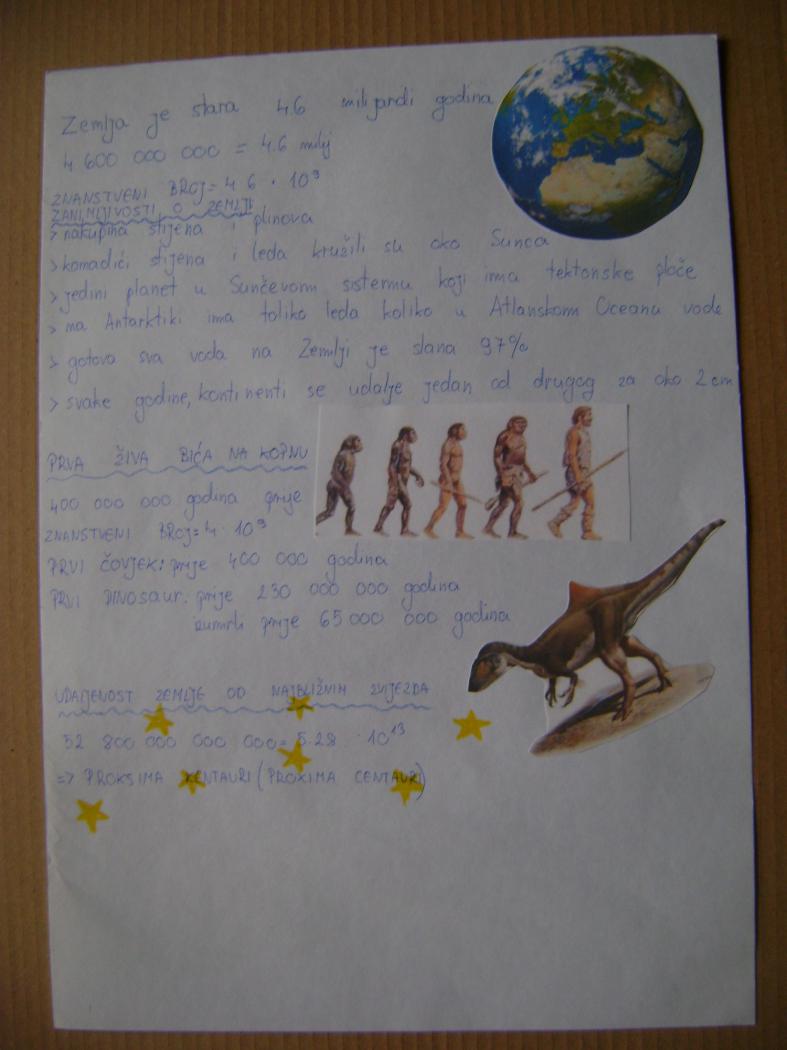 Zemlja je stara 4.6 milijardi godina
4 600 000 000 = 4.6 milij
ZNANSTVENI BROJ= 4 6 · 10⁹
ZANIMLJIVOSTI O ZEMLJI
> nakupina stijena i plinova
> komadići stijena i leda kružili su oko Sunca
> jedini planet u Sunčevom sistemu koji ima tektonske ploče
> na Antarktiki ima toliko leda koliko u Atlanskom Oceanu vode
> gotovo sva voda na Zemlji je slana 97%
> svake godine, kontinenti se udalje jedan od drugog za oko 2 cm
PRVA ŽIVA BIĆA NA KOPNU
400 000 000 godina prije
ZNANSTVENI BROJ= 4 · 10⁹
PRVI ČOVJEK: prije 400 000 godina
PRVI DINOSAUR: prije 230 000 000 godina
izumrli prije 65 000 000 godina
UDALJENOST ZEMLJE OD NAJBLIŽNIH ZVIJEZDA
52 800 000 000 000= 5.28 · 10¹³
=> PROKSIMA KENTAURI (PROXIMA CENTAURI)